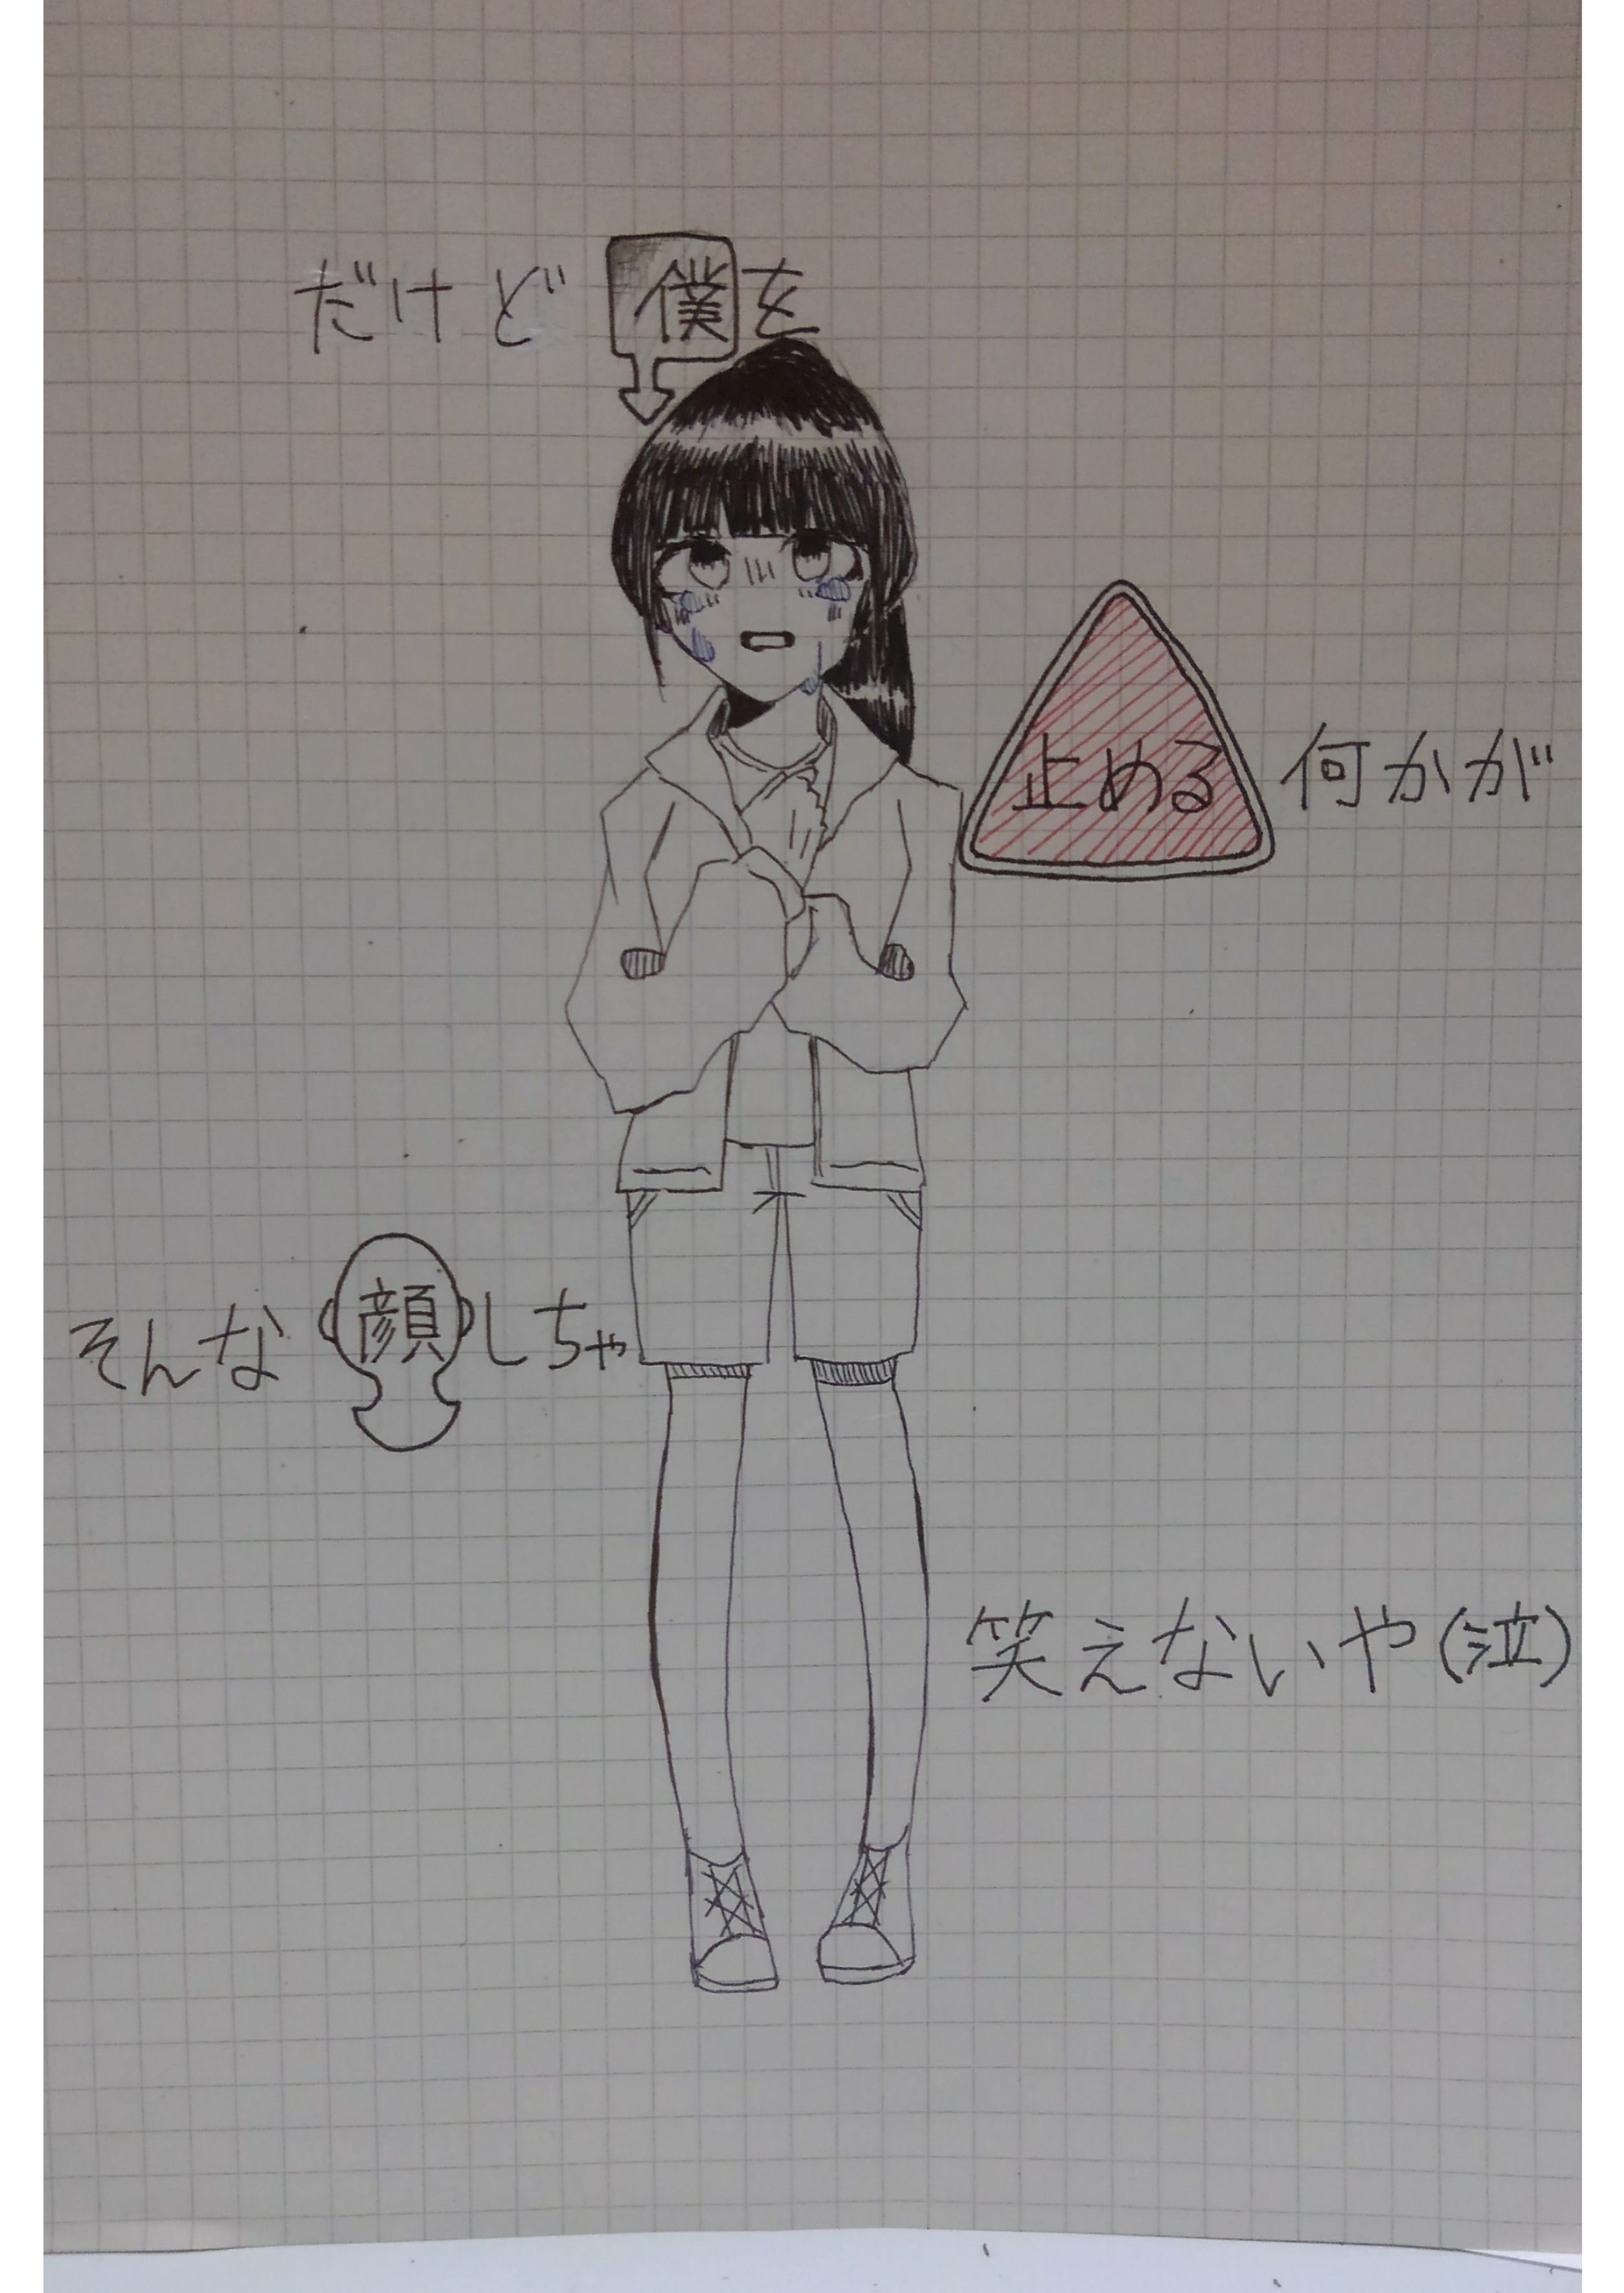 だけど僕を
止める何かが
そんな顔しちゃ
笑えないや(泣)